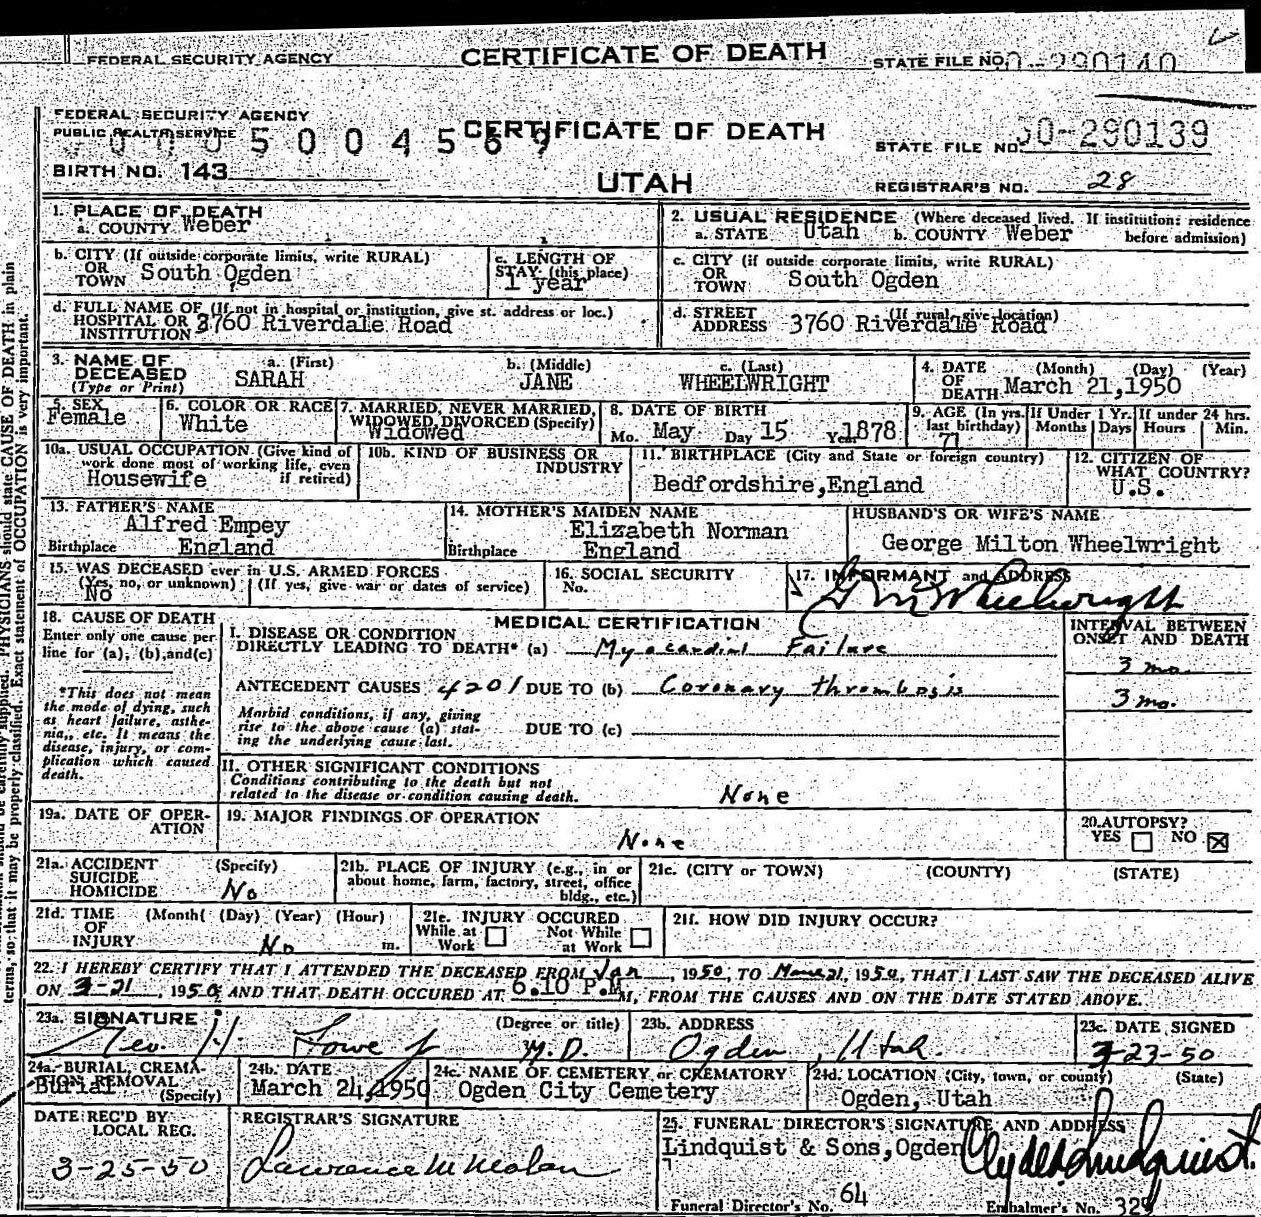 FEDERAL SECURITY AGENCY CERTIFICATE OF DEATH STATE FILE NO. 290140
FEDERAL SECURITY AGENCY
PUBLIC HEALTH SERVICE CERTIFICATE OF DEATH STATE FILE NO. 50-290139
BIRTH NO. 143 UTAH REGISTRAR'S NO. 28
1. PLACE OF DEATH
a. COUNTY Weber
2. USUAL RESIDENCE (Where deceased lived. If institution: residence
a. STATE Utah b. COUNTY Weber before admission)
b. CITY (If outside corporate limits, write RURAL)
OR
TOWN South Ogden
c. LENGTH OF
STAY (this place)
1 year
c. CITY (if outside corporate limits, write RURAL)
OR
TOWN South Ogden
d. FULL NAME OF (If not in hospital or institution, give st. address or loc.)
HOSPITAL OR 3760 Riverdale Road
INSTITUTION
d. STREET (If rural, give location)
ADDRESS 3760 Riverdale Road
3. NAME OF
DECEASED
(Type or Print)
a. (First)
SARAH
b. (Middle)
JANE
c. (Last)
WHEELWRIGHT
4. DATE (Month) (Day) (Year)
OF
DEATH March 21,1950
5. SEX
Female
6. COLOR OR RACE
White
7. MARRIED, NEVER MARRIED,
WIDOWED, DIVORCED (Specify)
Widowed
8. DATE OF BIRTH
Mo. May Day 15 Year 1878
9. AGE (In yrs.
last birthday)
71
If Under 1 Yr.
Months Days
If under 24 hrs.
Hours Min.
10a. USUAL OCCUPATION (Give kind of
work done most of working life, even
Housewife if retired)
10b. KIND OF BUSINESS OR
INDUSTRY
11. BIRTHPLACE (City and State or foreign country)
Bedfordshire,England
12. CITIZEN OF
WHAT COUNTRY?
U.S.
13. FATHER'S NAME
Alfred Empey
Birthplace England
14. MOTHER'S MAIDEN NAME
Elizabeth Norman
Birthplace England
HUSBAND'S OR WIFE'S NAME
George Milton Wheelwright
15. WAS DECEASED ever in U.S. ARMED FORCES
(Yes, no, or unknown) (If yes, give war or dates of service)
No
16. SOCIAL SECURITY
No.
17. INFORMANT and ADDRESS
G M Wheelwright
18. CAUSE OF DEATH
Enter only one cause per
line for (a), (b), and (c)
*This does not mean
the mode of dying, such
as heart failure, asthe-
nia, etc. It means the
disease, injury, or com-
plication which caused
death.
MEDICAL CERTIFICATION
I. DISEASE OR CONDITION
DIRECTLY LEADING TO DEATH* (a) Myocardial Failure
ANTECEDENT CAUSES 4201 DUE TO (b) Coronary thrombosis
Morbid conditions, if any, giving
rise to the above cause (a) stat-
ing the underlying cause last.
DUE TO (c)
INTERVAL BETWEEN
ONSET AND DEATH
3 mo.
3 mo.
II. OTHER SIGNIFICANT CONDITIONS
Conditions contributing to the death but not
related to the disease or condition causing death.
None
19a. DATE OF OPER-
ATION
19. MAJOR FINDINGS OF OPERATION
None
20. AUTOPSY?
YES NO
21a. ACCIDENT (Specify)
SUICIDE
HOMICIDE No
21b. PLACE OF INJURY (e.g., in or
about home, farm, factory, street, office
bldg., etc.)
21c. (CITY or TOWN) (COUNTY) (STATE)
21d. TIME (Month( (Day) (Year) (Hour)
OF
INJURY No m.
21e. INJURY OCCURED
While at Not While
Work at Work
21f. HOW DID INJURY OCCUR?
22. I HEREBY CERTIFY THAT I ATTENDED THE DECEASED FROM Jan, 1950, TO 21, 1950, THAT I LAST SAW THE DECEASED ALIVE
ON 3-21, 1950, AND THAT DEATH OCCURED AT 6.10 P.M M, FROM THE CAUSES AND ON THE DATE STATED ABOVE.
23a. SIGNATURE (Degree or title)
Geo. H. Lowe Jr M.D.
23b. ADDRESS
Ogden, Utah.
23c. DATE SIGNED
3-23-50
24a. BURIAL, CREMA-
TION, REMOVAL
Burial (Specify)
24b. DATE
March 24,1950
24c. NAME OF CEMETERY or CREMATORY
Ogden City Cemetery
24d. LOCATION (City, town, or county) (State)
Ogden, Utah
DATE REC'D BY
LOCAL REG.
3-25-50
REGISTRAR'S SIGNATURE
Lawrence M
25. FUNERAL DIRECTOR'S SIGNATURE AND ADDRESS
Lindquist & Sons,Ogden
Clyde Lindquist
Funeral Director's No. 64 Embalmer's No.